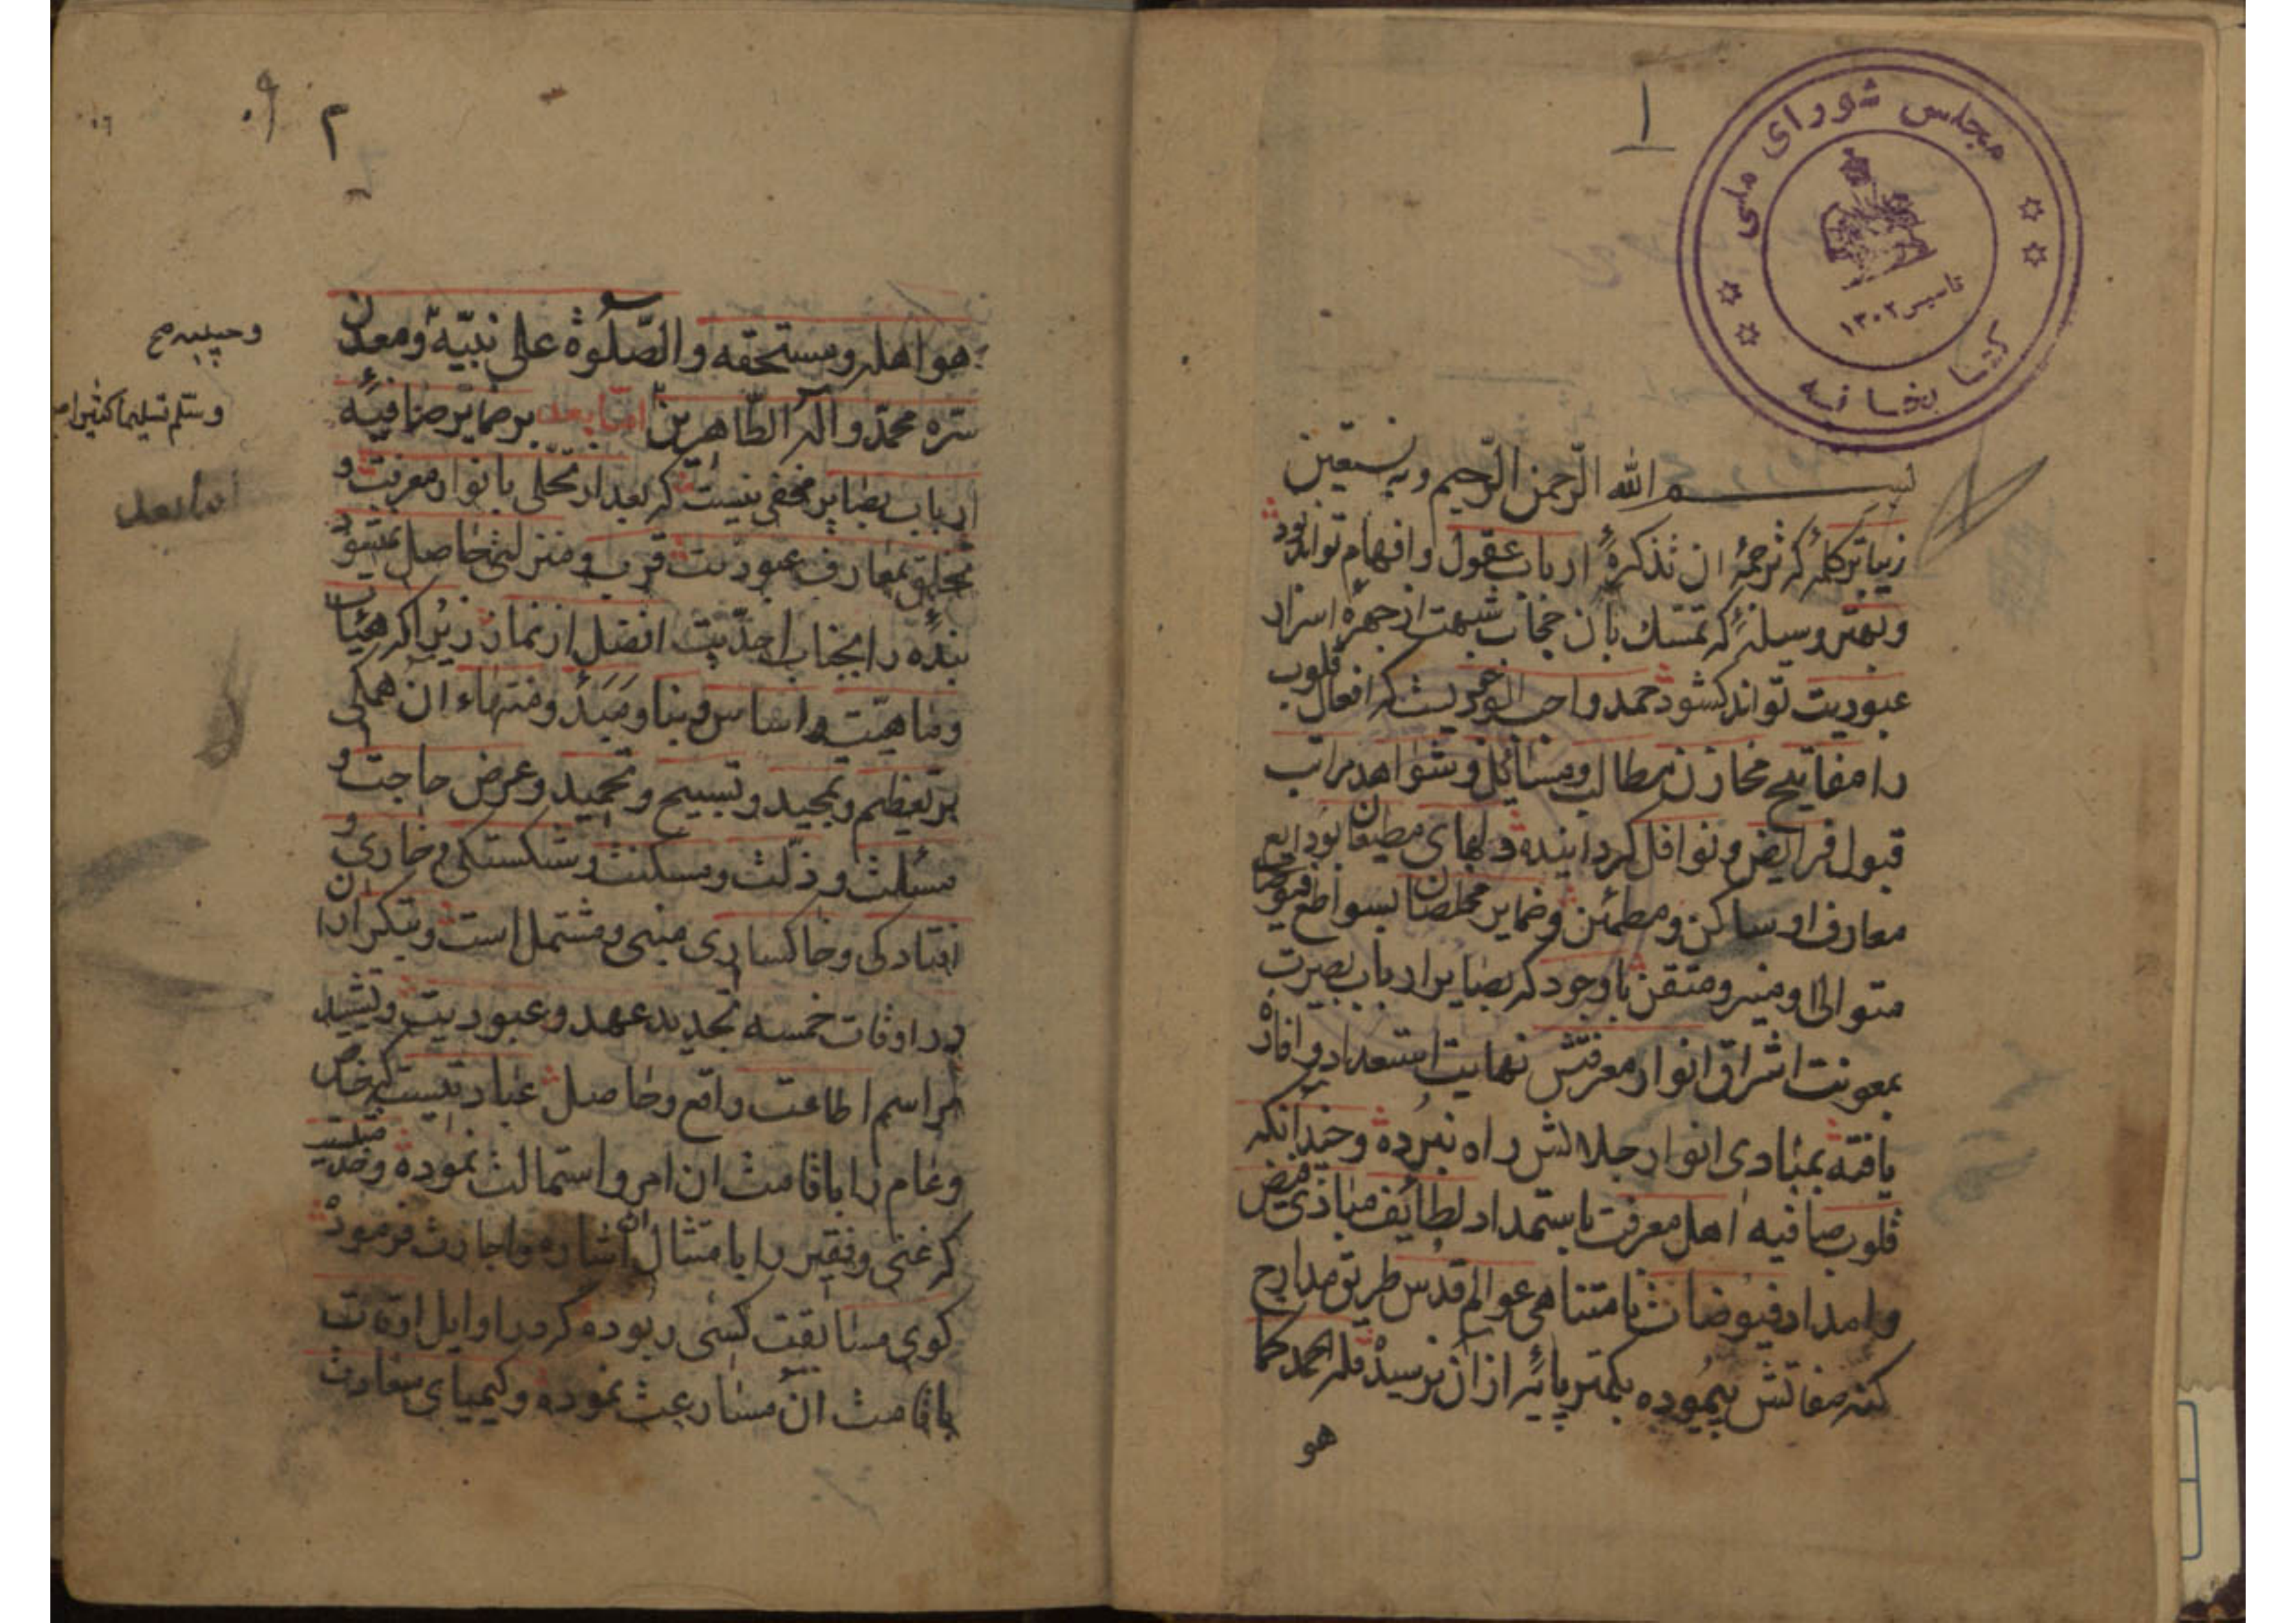 ۱
مجلس شورای ملی
تاسیس ۱۳۰۲
کتابخانه
بسم الله الرحمن الرحیم وبه نستعین
زیباتر کلمهٔ که ترجمهٔ ان تذکرهٔ ارباب عقول وافهام تواند بود
وبهتر وسیلهٔ که تمسك بان حجاب شبهت از چهرهٔ اسرار
عبودیت تواند کشود حمد واجب الوجودیست که اقفال قلوب
را مفاتیح مخازن مطالب ومسائل وشواهد مراتب
قبول فرایض ونوافل کردانیده دلهای مطیعان بودایع
معارف او ساکن ومطمئن وضمایر مخلصان بسواطع فتوحات
متوالی او منیر ومتقن باوجود که بصایر ارباب بصیرت
بمعونت اشراق انوار معرفتش نهایت استعداد وافاده
یافته بمبادی انوار جلالش راه نبرده وچندانکه
قلوب صافیه اهل معرفت باستمداد لطایف مبادی فیض
وامداد فیوضات نامتناهی عوالم قدس طریق مدارج
کنه صفاتش پیموده بکمتر پایهٔ از ان نرسیده فله الحمد کما
هو
۲
هو اهله ومستحقه والصلوة علی نبیه ومعدن
سره محمد وآله الطاهرین اما بعد بر ضمایر صافیهٔ
ارباب بصایر مخفی نیست که بعد از تحلی بانوار معرفت و
تخلق بمعارف عبودیت قرب ومنزلتی حاصل نمیشود
بنده را بجناب احدیت افضل از نماز زیرا که هیئات
وماهیت واساس وبنا ومبدء ومنتهاء ان همکی
بر تعظیم وتمجید وتسبیح وتحمید وعرض حاجت و
مسئلت وذلت ومسکنت وشکستکی وخاری و
افتادکی وخاکساری مبنی ومشتمل است وبتکرار ان
در اوقات خمسه تجدید عهد وعبودیت وتشیید
مراسم اطاعت واقع وحاصل عبادتیست که خاص
وعام را باقامت ان امر واستمالت نموده وخدمتیست
که غنی وفقیر را بامتثال ان اشاره واجازت فرموده
کوی مسابقت کسی ربوده که در اوایل اوقات
باقامت ان مسارعت نموده وکیمیای سعادت
وحبیبه صح
وسلم تسلیما کثیرا
اما بعد